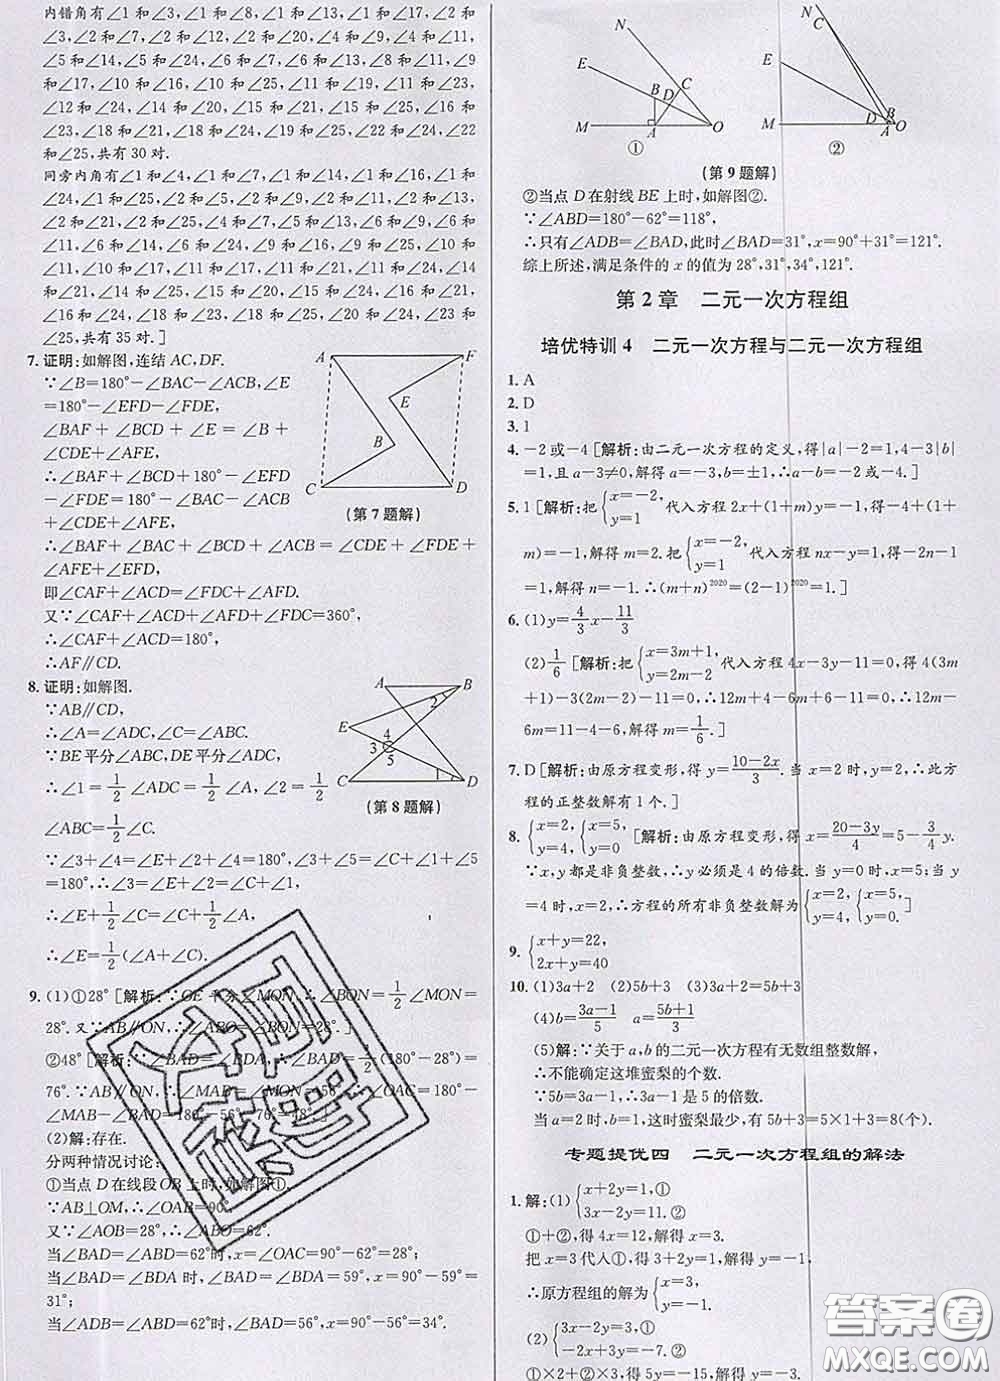 内错角有∠1 和∠3,∠1 和∠8,∠1 和∠17,∠2 和
∠3,∠2 和∠7,∠2 和∠12,∠4 和∠8,∠4 和∠11,
∠5 和∠14,∠6 和∠13,∠6 和∠8,∠11 和∠9,
∠10 和∠16,∠10 和∠25,∠11 和∠9,∠11 和∠23,
∠12 和∠24,∠14 和∠20,∠15 和∠21,∠15 和∠16
和∠23,∠18 和∠24,∠19 和∠22,∠24 和∠22
和∠25,共有 30 对.
同旁内角有∠1 和∠4,∠1 和∠7,∠1 和∠14,∠1
和∠25,∠2 和∠5,∠2 和∠8,∠2 和∠13,
∠2 和∠21,∠4 和∠7,∠5 和∠13,∠6 和∠8,∠6
和∠14,∠6 和∠24,∠9 和∠16,∠9 和∠25,∠10
和∠11,∠10 和∠24,∠11 和∠24,∠12 和∠14
和∠21,∠14 和∠21,∠15 和∠20,∠15 和
∠25,共有 35 对.]
7. 证明:如解图,连结 AC,DF.
∵∠B=180°-∠BAC-∠ACB,∠E
=180°-∠EFD-∠FDE,
∠BAF+∠BCD+∠E=∠B+
∠CDE+∠AFE,
∴∠BAF+∠BCD+180°-∠EFD
-∠FDE=180°-∠BAC-∠ACB
+∠CDE+∠AFE,
∴∠BAF+∠BAC+∠BCD+∠ACB=∠CDE+∠FDE+
∠AFE+∠EFD,
即∠CAF+∠ACD=∠FDC+∠AFD.
又∵∠CAF+∠ACD+∠AFD+∠FDC=360°,
∴∠CAF+∠ACD=180°,
∴AF∥CD.
A F E B C D
(第 7 题解)
8. 证明:如解图.
∵AB∥CD,
∴∠A=∠ADC,∠C=∠ABC.
∵BE 平分∠ABC,DE 平分∠ADC,
∴∠1=1/2∠ADC=1/2∠A,∠2=1/2
∠ABC=1/2∠C.
A B 2 E 4 3 5 C 1 D
(第 8 题解)
∵∠3+∠4=∠E+∠2+∠4=180°,∠3+∠5=∠C+∠1+∠5
=180°,∴∠3=∠E+∠2=∠C+∠1,
∴∠E+1/2∠C=∠C+1/2∠A,
∴∠E=1/2(∠A+∠C).
9. (1)①28° [解析:∵OE 平分∠MON,∴∠BON=1/2∠MON=
28°.又∵AB∥ON,∴∠ABO=∠BON=28°.]
②48° [解析:∵∠BAD=∠BDA,∴∠BAD=1/2(180°-28°)=
76°.∵AB∥ON,∴∠OAB=180°-∠MON=156°,∴∠OAC=180°-
∠MAB-∠BAD=180°-56°-76°=48°]
(2)解:存在.
分两种情况讨论:
①当点 D 在线段 OB 上时,如解图①.
∵AB⊥OM,∴∠OAB=90°.
又∵∠AOB=28°,∴∠ABO=62°.
当∠BAD=∠ABD=62°时,x=∠OAC=90°-62°=28°;
当∠BAD=∠BDA 时,∠BAD=59°,x=90°-59°=
31°;
当∠ADB=∠ABD=62°时,∠BAD=56°,x=90°-56°=34°.
N E B C D M A O
①
N C E D B M A O
②
(第 9 题解)
②当点 D 在射线 BE 上时,如解图②.
∵∠ABD=180°-62°=118°,
∴只有∠ADB=∠BAD,此时∠BAD=31°,x=90°+31°=121°.
综上所述,满足条件的 x 的值为 28°,31°,34°,121°.
第 2 章 二元一次方程组
培优特训 4 二元一次方程与二元一次方程组
1. A
2. D
3. 1
4. -2或-4 [解析:由二元一次方程的定义,得|a|-2=1,4-3|b|
=1,且 a-3≠0,解得 a=-3,b=±1,∴a-b=-2或-4.]
5. 1 [解析:把{x=-2, y=1 代入方程 2x+(1+m)y=-1,得-4+(1+
m)=-1,解得 m=2.把{x=-2, y=1 代入方程 nx-y=1,得-2n-1
=1,解得 n=-1.∴(m+n)²⁰²⁰=(2-1)²⁰²⁰=1.]
6. (1)y=4/3x-11/3
(2)1/6 [解析:把{x=3m+1, y=2m-2 代入方程 4x-3y-11=0,得 4(3m
+1)-3(2m-2)-11=0,∴12m+4-6m+6-11=0,∴12m-
6m=11-4-6,解得 m=1/6.]
7. D [解析:由原方程变形,得 y=(10-2x)/3.当 x=2 时,y=2,∴此方
程的正整数解有 1 个.]
8. {x=2, y=4, {x=5, y=0 [解析:由原方程变形,得 x=(20-3y)/4=5-3/4y.
∵x,y 都是非负整数,∴y 必须是 4 的倍数.当 y=0 时,x=5;当 y
=4 时,x=2,∴方程的所有非负整数解为{x=2, y=4, {x=5, y=0.]
9. {x+y=22, 2x+y=40
10. (1)3a+2 (2)5b+3 (3)3a+2=5b+3
(4)b=(3a-1)/5 a=(5b+1)/3
(5)解:∵关于 a,b 的二元一次方程有无数组整数解,
∴不能确定这堆蜜梨的个数.
∵5b=3a-1,∴3a-1 是 5 的倍数.
当 a=2 时,b=1,这时蜜梨最少,有 5b+3=5×1+3=8(个).
专题提优四 二元一次方程组的解法
1. 解:(1){x+2y=1,① 3x-2y=11.②
①+②,得 4x=12,解得 x=3.
把 x=3 代入①,得 3+2y=1,解得 y=-1.
∴原方程组的解为{x=3, y=-1.
(2){3x-2y=6,① -2x+3y=-7.②
①×2+②×3,得 5y=-15,解得 y=-3.
答案圈
MXQE.COM